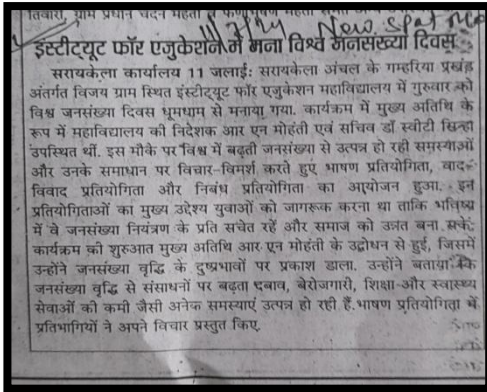 तिवारी, ग्राम प्रधान चंदन महतो
New Ispat Mail
इंस्टीट्यूट फॉर एजुकेशन में मना विश्व जनसंख्या दिवस
सरायकेला कार्यालय 11 जुलाई: सरायकेला अंचल के गम्हरिया प्रखंड
अंतर्गत विजय ग्राम स्थित इंस्टीट्यूट फॉर एजुकेशन महाविद्यालय में गुरुवार को
विश्व जनसंख्या दिवस धूमधाम से मनाया गया. कार्यक्रम में मुख्य अतिथि के
रूप में महाविद्यालय की निदेशक आर एन मोहंती एवं सचिव डॉ स्वीटी सिन्हा
उपस्थित थीं. इस मौके पर विश्व में बढ़ती जनसंख्या से उत्पन्न हो रही समस्याओं
और उनके समाधान पर विचार-विमर्श करते हुए भाषण प्रतियोगिता, वाद-
विवाद प्रतियोगिता और निबंध प्रतियोगिता का आयोजन हुआ. इन
प्रतियोगिताओं का मुख्य उद्देश्य युवाओं को जागरूक करना था ताकि भविष्य
में वे जनसंख्या नियंत्रण के प्रति सचेत रहें और समाज को उन्नत बना सकें.
कार्यक्रम की शुरुआत मुख्य अतिथि आर एन मोहंती के उद्बोधन से हुई, जिसमें
उन्होंने जनसंख्या वृद्धि के दुष्प्रभावों पर प्रकाश डाला. उन्होंने बताया कि
जनसंख्या वृद्धि से संसाधनों पर बढ़ता दबाव, बेरोजगारी, शिक्षा और स्वास्थ्य
सेवाओं की कमी जैसी अनेक समस्याएं उत्पन्न हो रही हैं. भाषण प्रतियोगिता में
प्रतिभागियों ने अपने विचार प्रस्तुत किए.